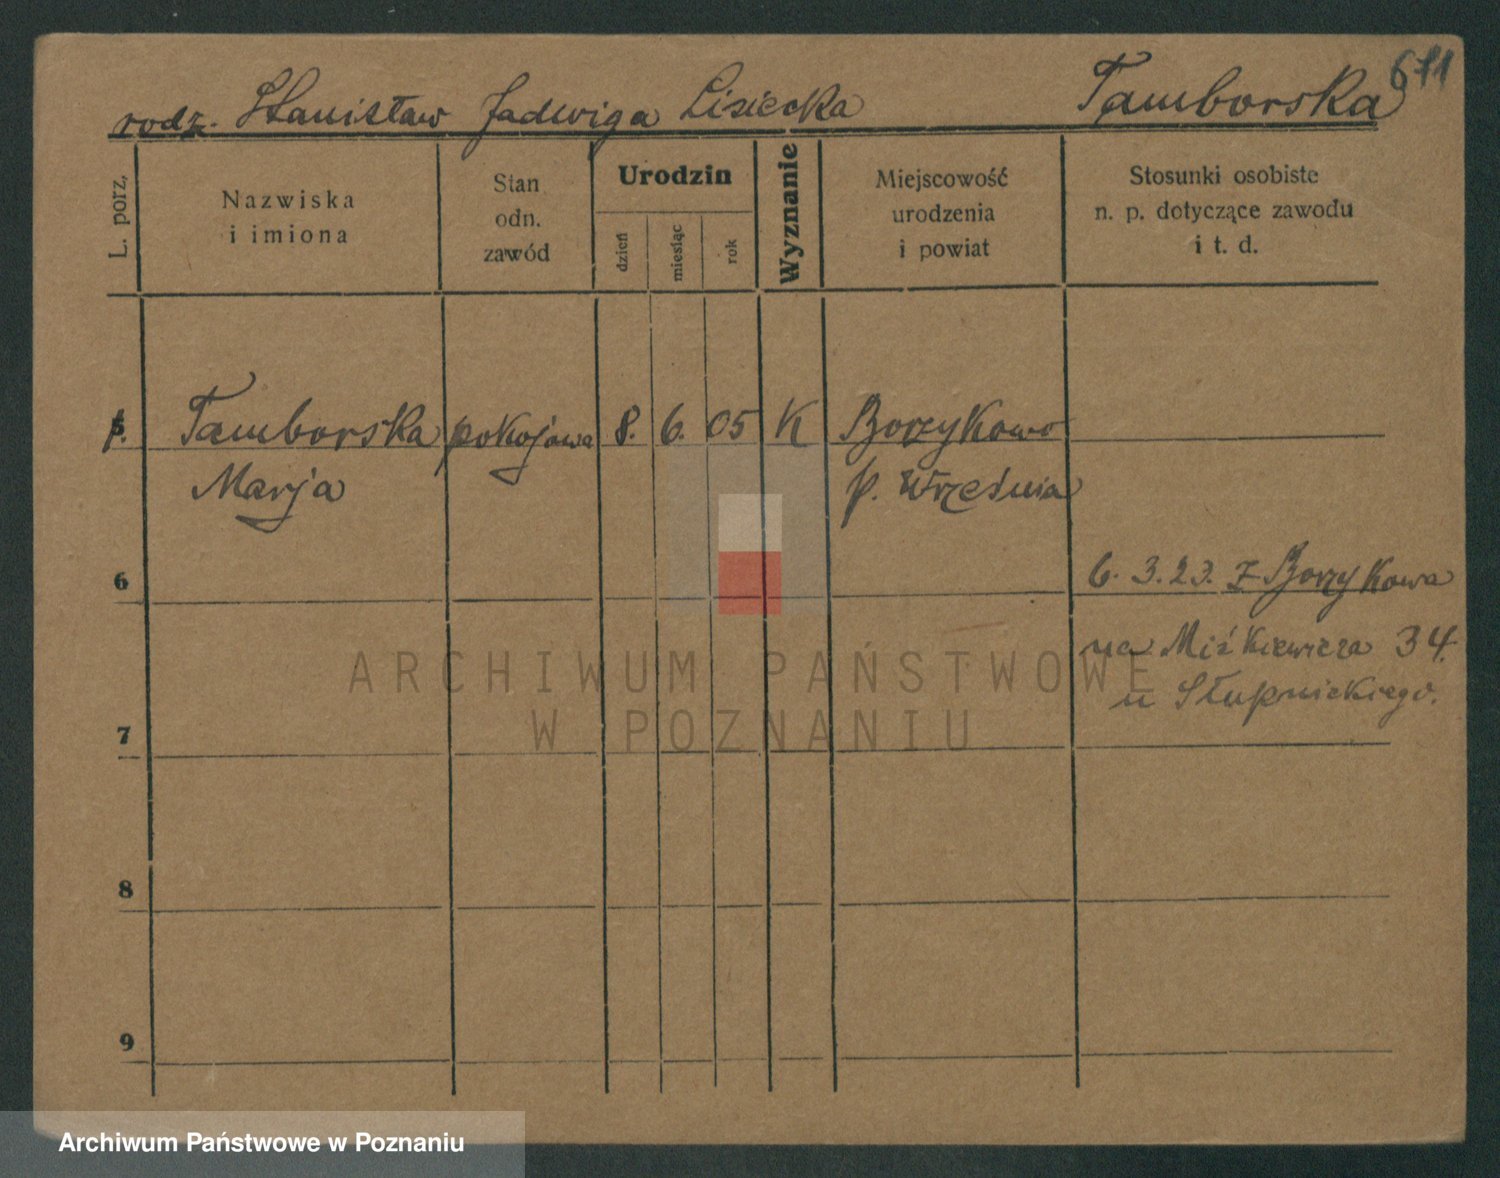 611
rodz. Stanisław Jadwiga Lisiecka Tamborska
L. porz.
Nazwiska
i imiona
Stan
odn.
zawód
Urodzin
dzień
miesiąc
rok
Wyznanie
Miejscowość
urodzenia
i powiat
Stosunki osobiste
n. p. dotyczące zawodu
i t. d.
Tamborska pokojowa 8. 6. 05 K Borzykowo
Marja p. Września
6
6. 3. 23. z Borzykowa
na Miśkiewicza 34.
u Słupnickiego.
7
8
9
ARCHIWUM PAŃSTWOWE
W POZNANIU
Archiwum Państwowe w Poznaniu